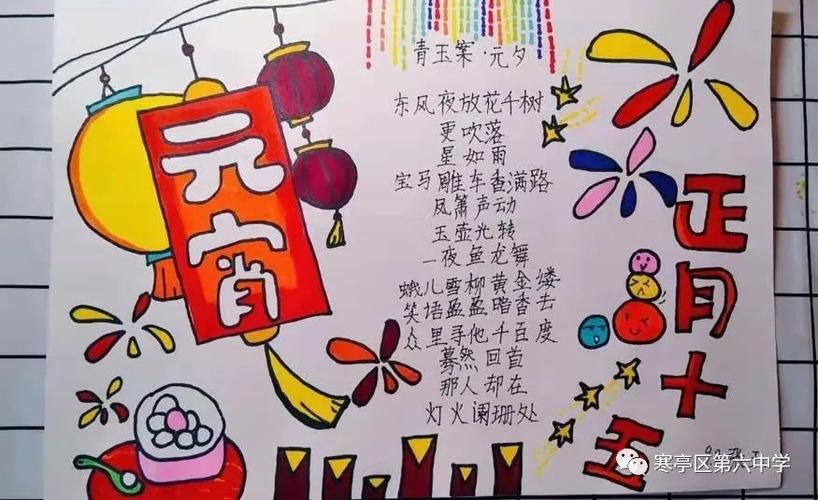 元宵
青玉案·元夕
东风夜放花千树
更吹落
星如雨
宝马雕车香满路
凤箫声动
玉壶光转
一夜鱼龙舞
蛾儿雪柳黄金缕
笑语盈盈暗香去
众里寻他千百度
蓦然回首
那人却在
灯火阑珊处
正月十五
寒亭区第六中学